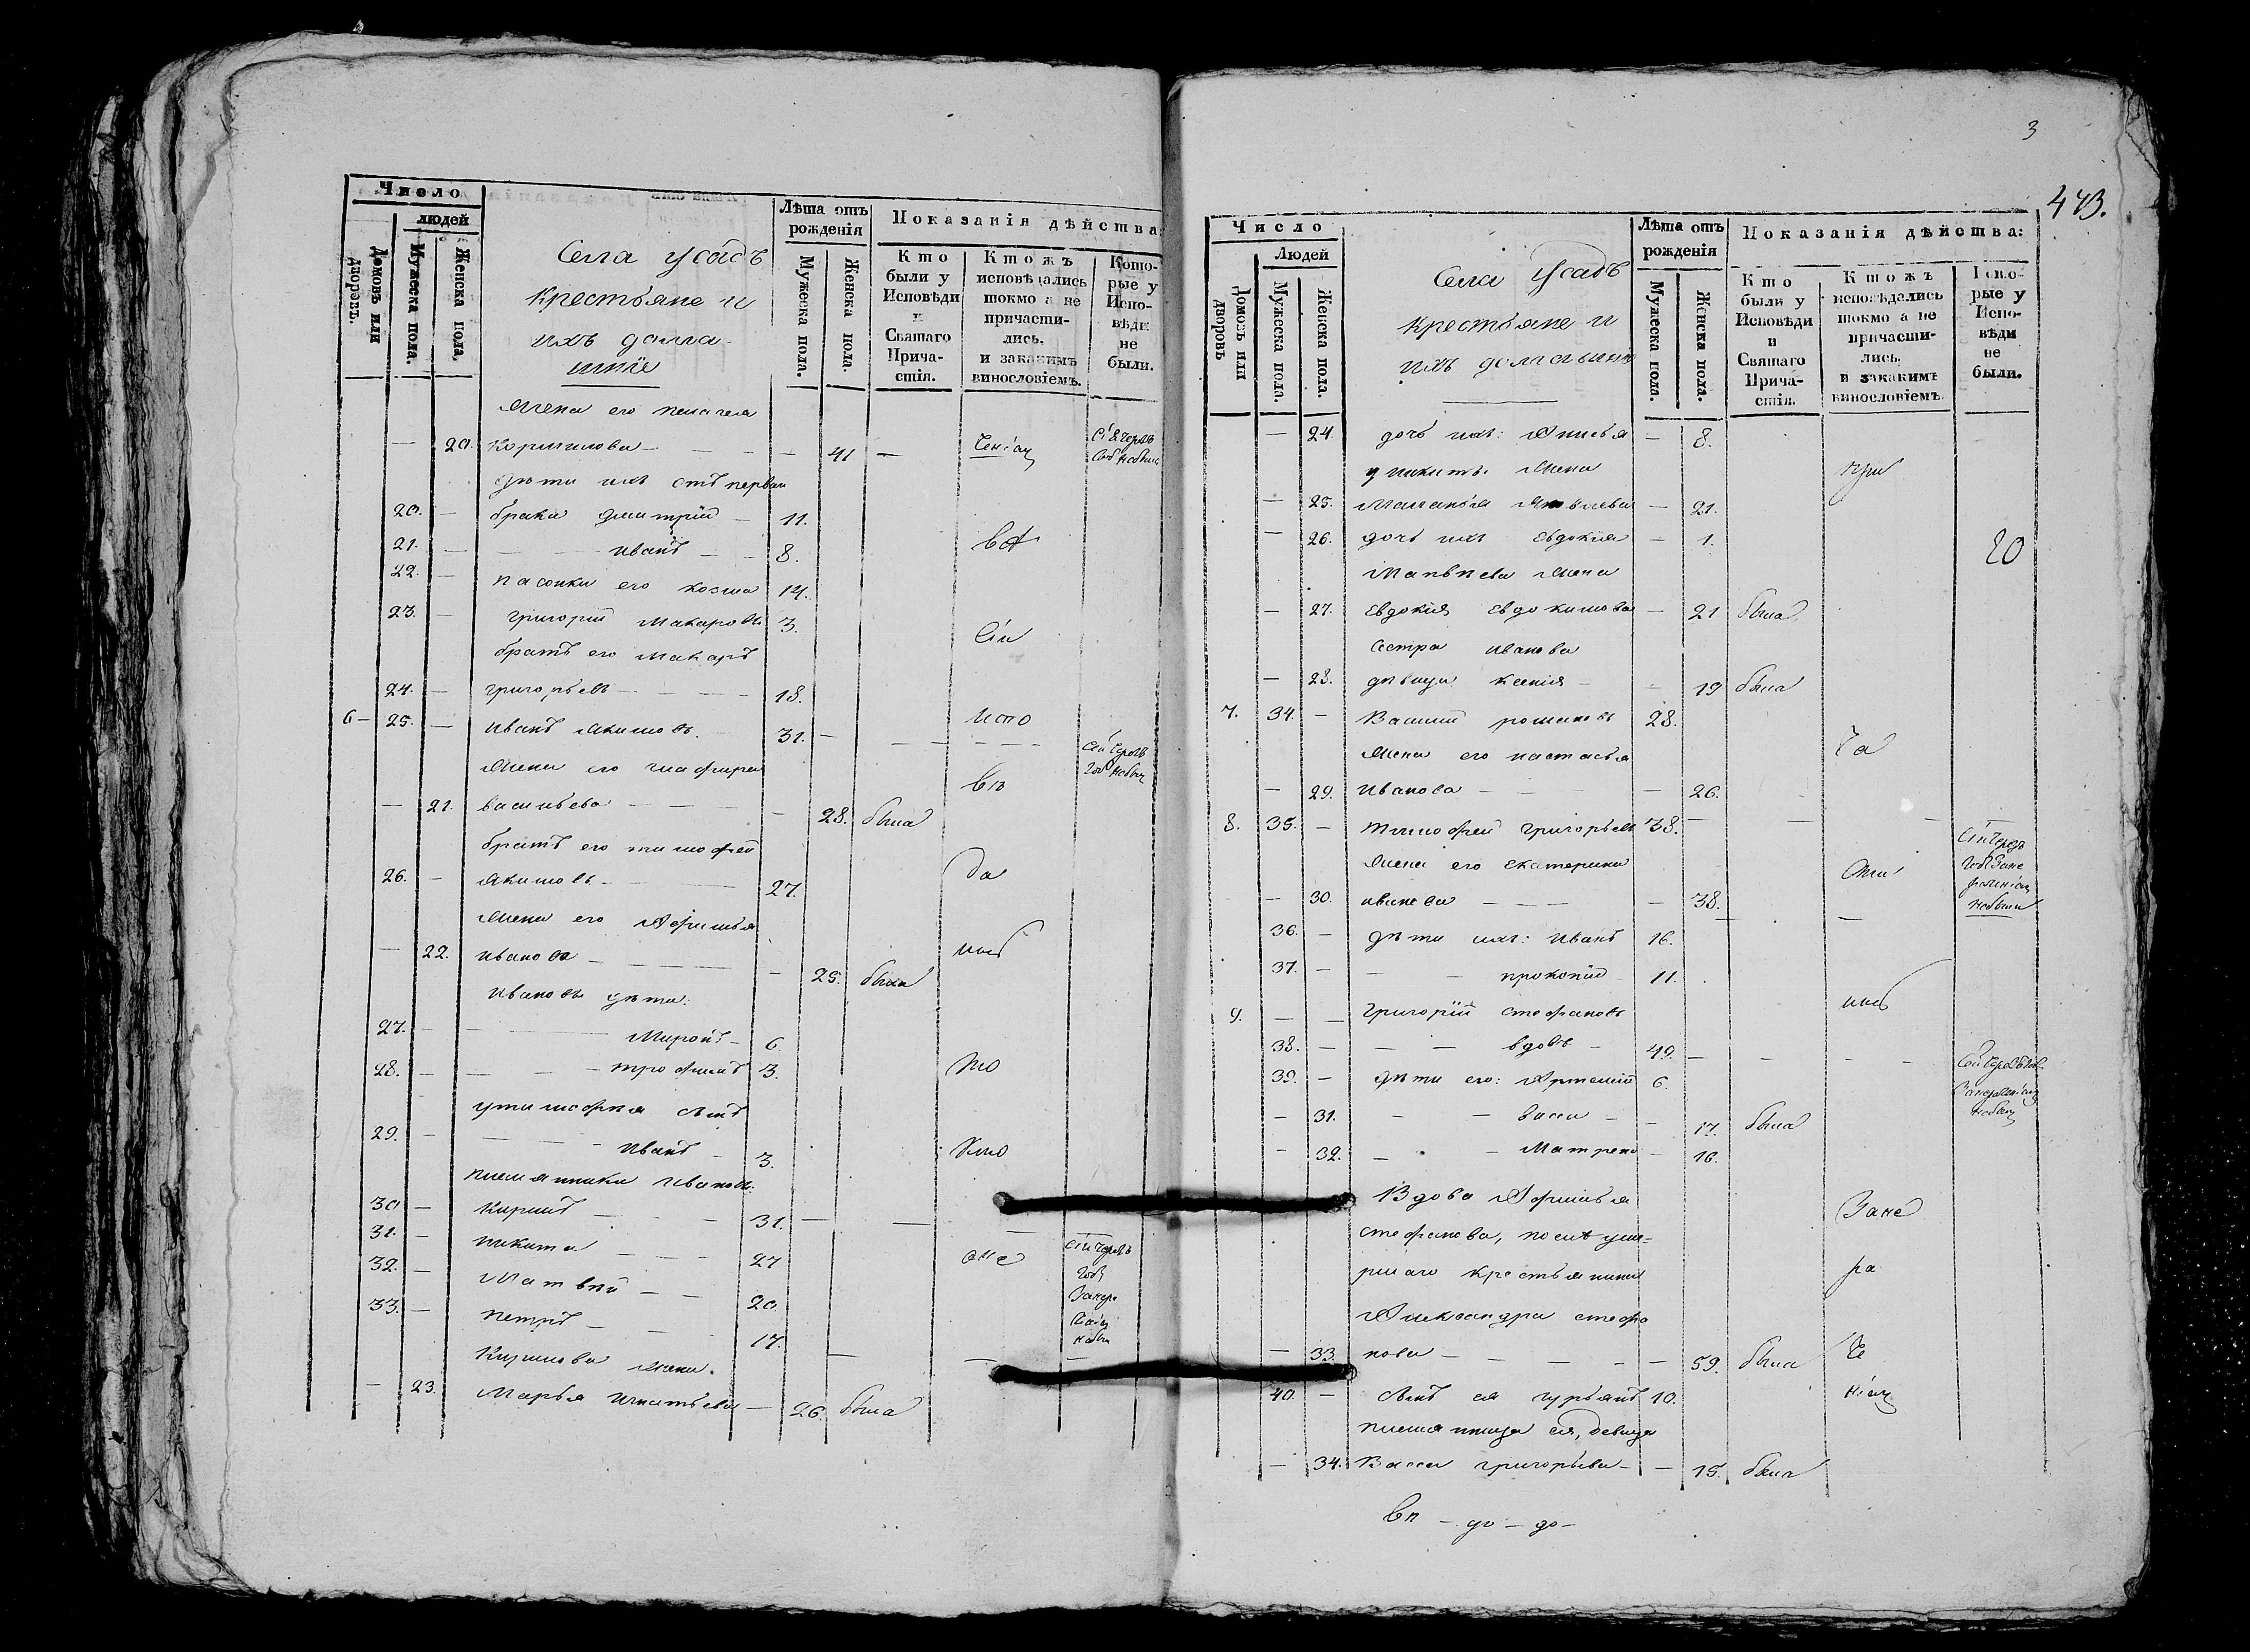 Число
людей
Домовъ или дворовъ.
Мужеска пола.
Женска пола.
Села усадъ
крестьяне и
ихъ домаш-
нiе
Лѣта отъ рожденiя
Мужеска пола.
Женска пола.
Показанiя дѣйства
Кто были у Исповѣди и Святаго Прича-стiя.
Ктожъ исповѣдались токмо а не причасти-лись. и закакимъ винословiемъ.
Кото-рые у Испо-вѣди не были.
жена его пелагея
— 20. Корнилова — — — 41 —
дѣти ихъ отъ перваго
20. — брака димитрiй — 11.
21. — — — иванъ — — 8.
22. — пасонки его козма 14.
23. — григорiй макаровы 3.
братъ его макаръ
24. — григорьевъ — — — 18.
6 — 25. — иванъ якимовъ. — 31. —
жена его глафира
— 21. васильева — — — 28. была
братъ его тимофей
26. — якимовъ — — 27.
жена его Афимья
— 22. иванова — — — 25. была
ивановы дѣти:
27. — — Миронъ — 6
28. — — — трофимъ 3.
у тимофея сынъ
29. — — — иванъ — 3.
племянники ивановы
30 — кирилъ — — — 31. —
31. — никита — — 27
32. — Матвѣй — — 20.
33. — петръ — — 17.
Кирилова жена.
— 23. Марья игнатьева — 26. была
3
443.
Число
Людей
Домовъ или дворовъ
Мужеска пола.
Женска пола.
Села Усадъ
крестьяне и
ихъ домашнiе
Лѣта отъ рожденiя
Мужеска пола.
Женска пола.
Показанiя дѣйства:
Кто были у Исповѣди и Святаго Прича-стiя.
Ктожъ исповѣдались токмо а не причасти-лись. и закакимъ винословiемъ.
Кото-рые у Испо-вѣди не были.
— 24. дочь ихъ: Анисья — 8.
у никиты жена
— 25. Маланья Яковлева — 21.
— 26. дочь ихъ Евдокiя — 1.
Матвѣева жена
— 27. Евдокiя Евдокимова — 21 была
сестра иванова
— 28. дѣвица ксенiя — — 19 была
7. 34. — Василiй романовъ 28.
жена его настасья
— 29. Иванова — — — 26.
8. 35. — тимофей григорьевъ 38. — — —
жена его екатерина
— 30. иванова — — — — 38.
36. — дѣти ихъ: иванъ 16.
37. — — — прокопiй 11.
9. — — григорiй стефановъ
38. — — — вдовъ — 49. — — — —
39. — дѣти его: Артемiй 6.
— 31. — — васса — — 17. была
— 32. — — Матрена — 16.
Вдова Афимья
стефанова, послѣ уме-
ршаго крестьянина
Александра стефа
— 33. нова — — — — 59. была
40. — сынъ ея гурьянъ 10.
племянница ея, девица
— 34. Васса григорьева — — 15. была